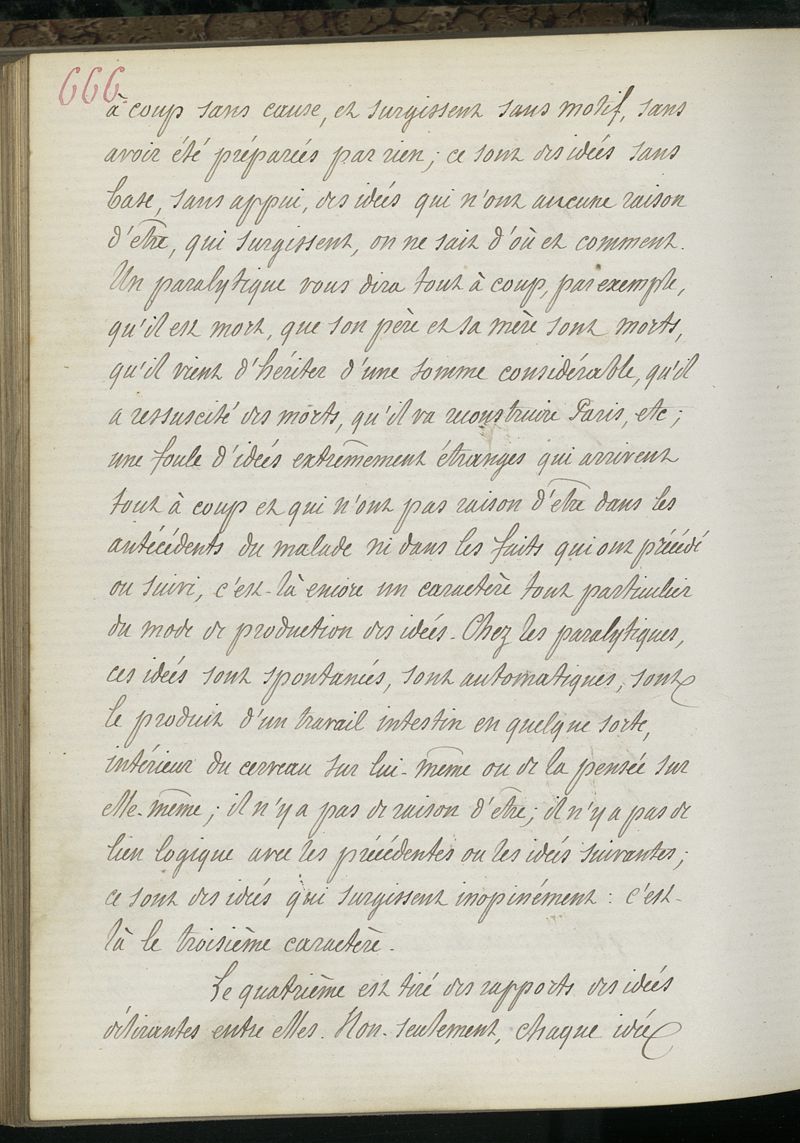 666
à coup sans cause, et surgissent sans motif, sans
avoir été préparées par rien; ce sont des idées sans
base, sans appui, des idées qui n'ont aucune raison
d'être, qui surgissent, on ne sait d'où et comment.
Un paralytique vous dira tout à coup, par exemple,
qu'il est mort, que son père et sa mère sont morts,
qu'il vient d'hériter d'une somme considérable, qu'il
a ressuscité des morts, qu'il va reconstruire Paris, etc;
une foule d'idées extrêmement étranges qui arrivent
tout à coup et qui n'ont pas raison d'être dans les
antécédents du malade ni dans les faits qui ont précédé
ou suivi, c'est-là encore un caractère tout particulier
du mode de production des idées. Chez les paralytiques,
ces idées sont spontanées, sont automatiques, sont
le produit d'un travail intestin en quelque sorte,
intérieur du cerveau sur lui-même ou de la pensée sur
elle-même; il n'y a pas de raison d'être; il n'y a pas de
lien logique avec les précédentes ou les idées suivantes;
ce sont des idées qui surgissent inopinément: c'est-
là le troisième caractère.
Le quatrième est tiré des rapports des idées
délirantes entre elles. Non-seulement, chaque idée